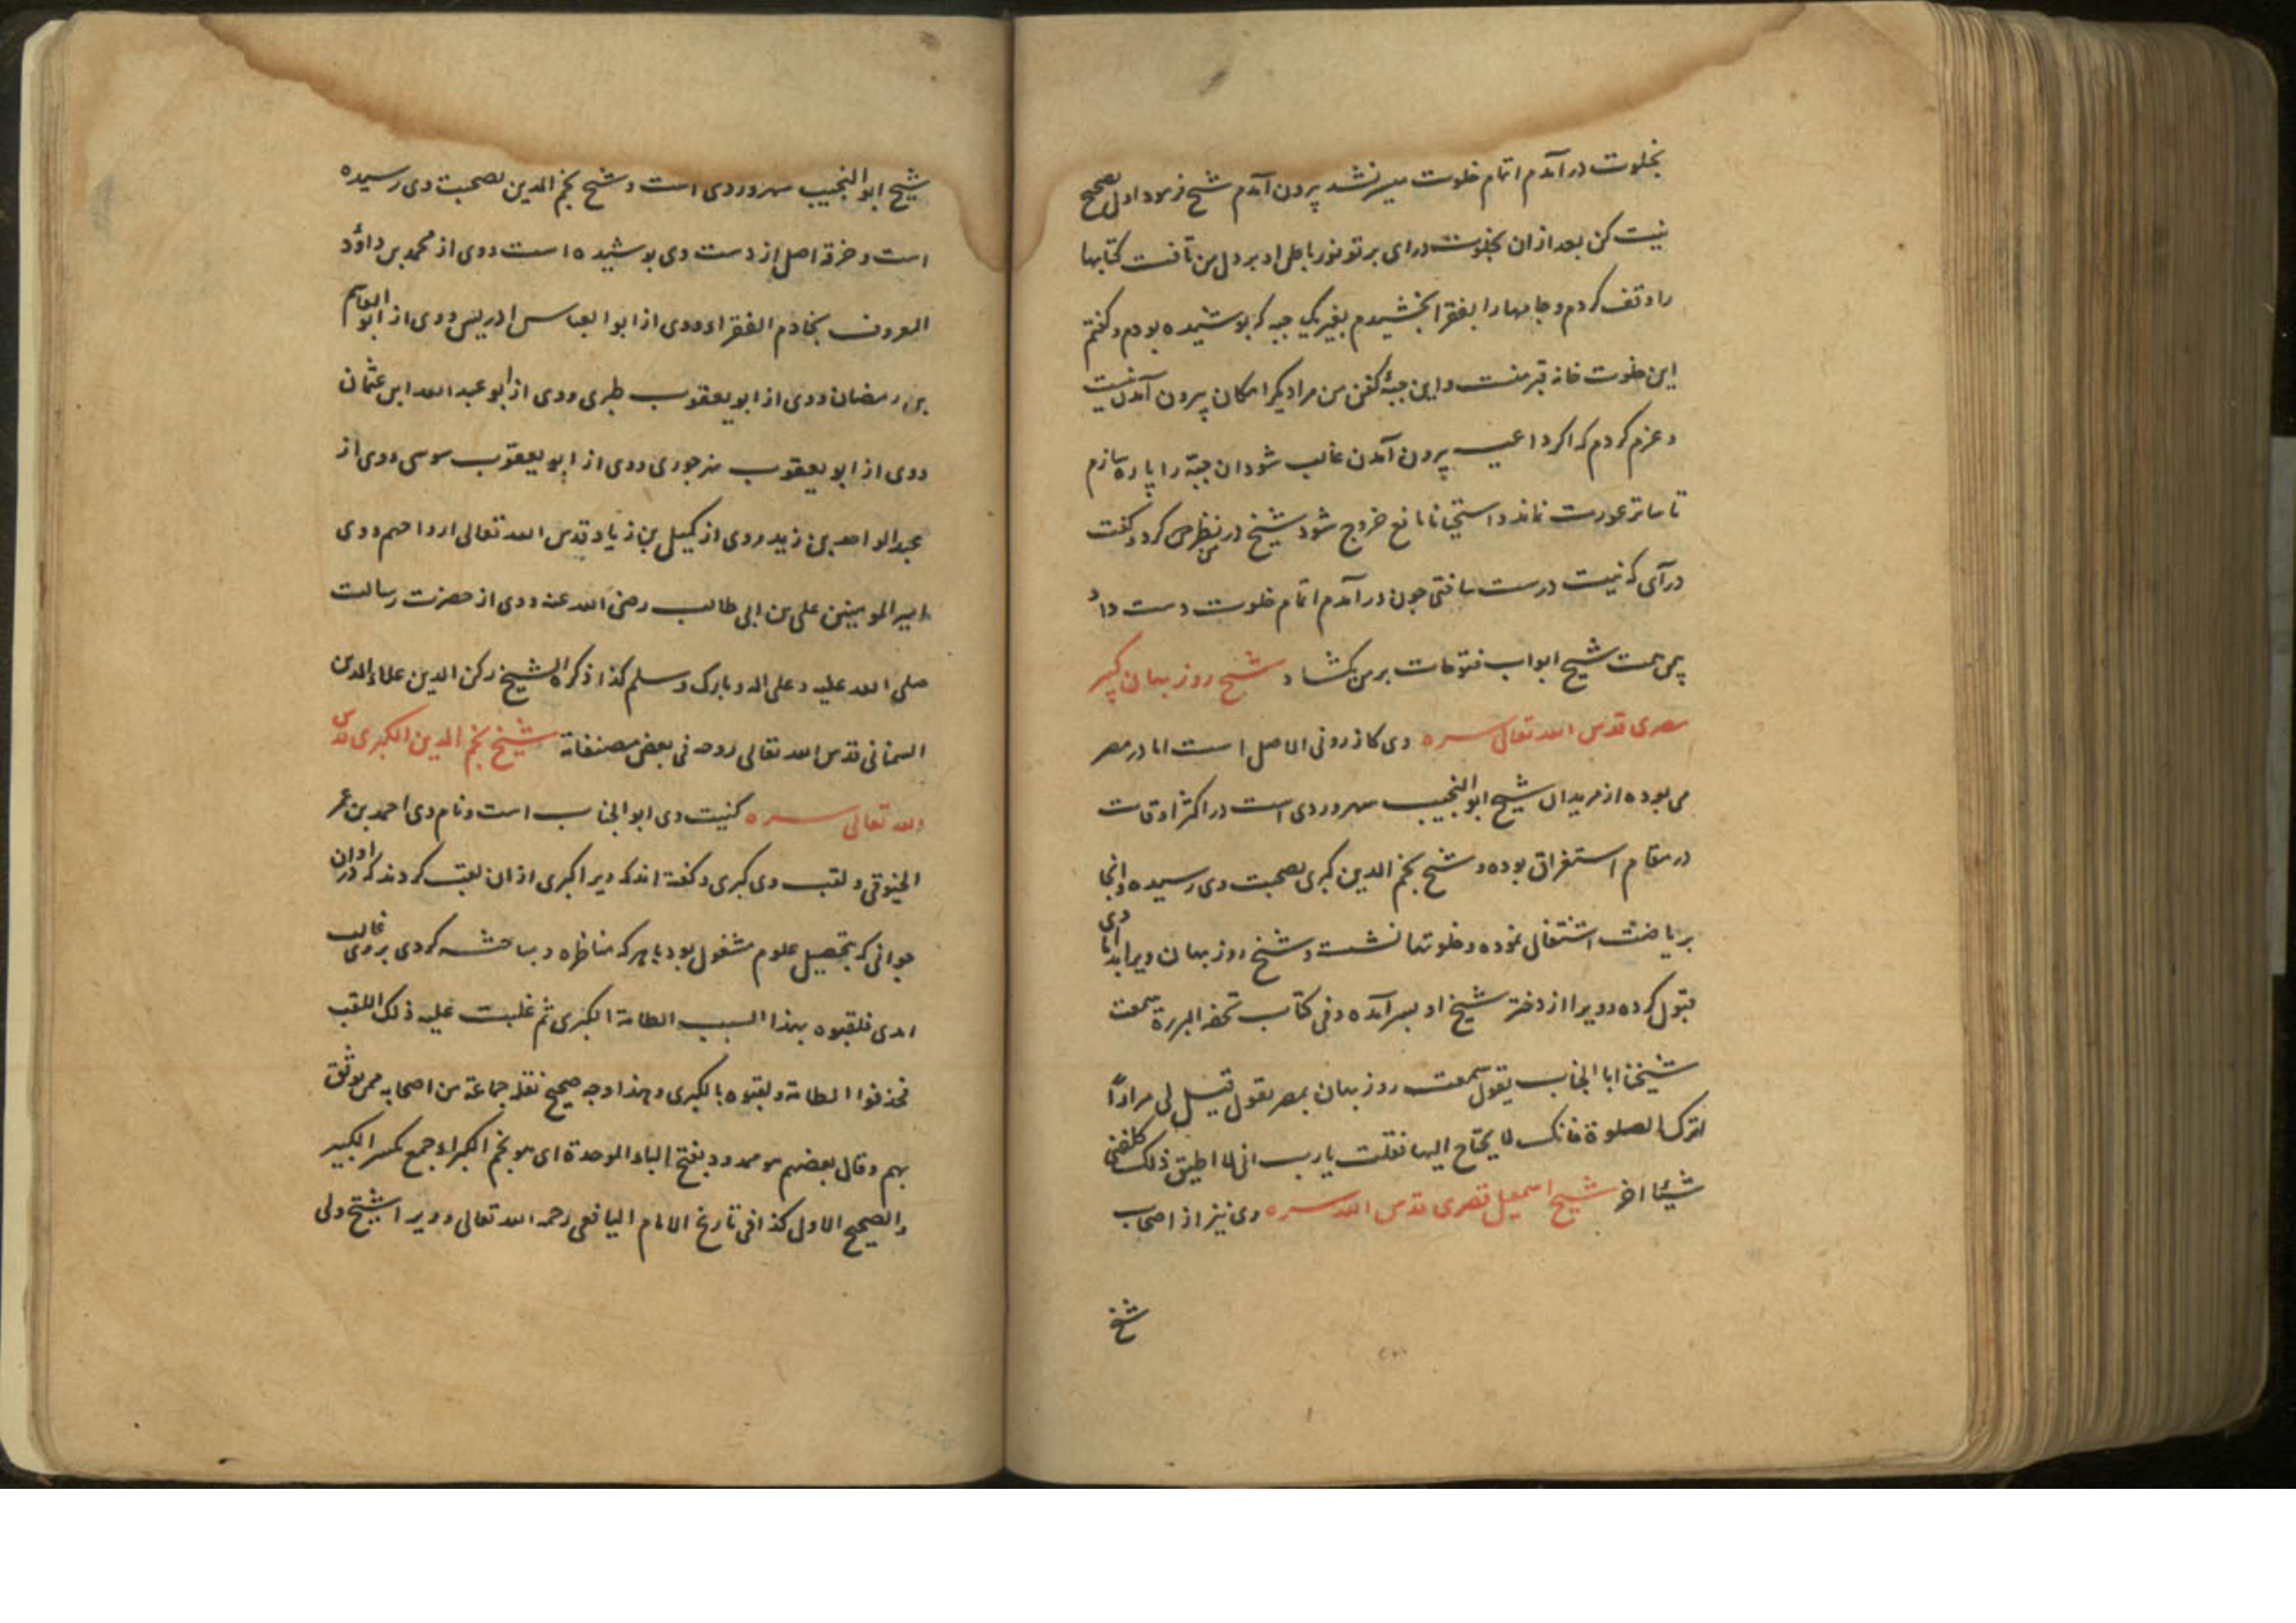 بخلوت در آمدم اتمام خلوت میسر نشد بیرون آمدم شیخ فرمود اول تصحیح
نیت کن بعد از ان بخلوت درای پرتو نور باطن او بر دل من تافت کتابها
را وقف کردم و جامها را بفقرا بخشیدم بغیر یک جبه که پوشیده بودم و گفتم
این خلوت خانه قبر منست و این جبه کفن من مرا دیگر امکان بیرون آمدن نیست
و عزم کردم که اگر داعیه بیرون آمدن غالب شود ان جبه را پاره سازم
تا ساتر عورت نماند و استحیا مانع خروج شود شیخ در من نظر کرد و گفت
درآی که نیت درست ساختی چون در آمدم اتمام خلوت دست داد
بیمن همت شیخ ابواب فتوحات بر من بکشاد شیخ روز بهان کبیر
مصری قدس الله تعالی سره وی کازرونی الاصل است اما در مصر
می بوده از مریدان شیخ ابو النجیب سهروردی است در اکثر اوقات
در مقام استغراق بوده و شیخ نجم الدین کبری بصحبت وی رسیده و انجا
بریاضت اشتغال نموده و خلوتها نشست و شیخ روز بهان ویرا بدامادی
قبول کرده و ویرا از دختر شیخ او پسر آمده و فی کتاب تحفه البررة سمعت
شیخنا ابا الجناب یقول سمعت روز بهان بمصر یقول قیل لی مرارًا
اترک الصلوة فانک لا یحتاج الیها فقلت یا رب انی لا اطیق ذلک کلفنی
شیئا اخر شیخ اسمعیل قصری قدس الله سره وی نیز از اصحاب
شیخ
شیخ ابو النجیب سهروردی است و شیخ نجم الدین بصحبت وی رسیده
است و خرقه اصل از دست وی پوشیده است و وی از محمد بن داؤد
المعروف بخادم الفقراء و وی از ابو العباس ادریس و وی از ابو القاسم
بن رمضان و وی از ابو یعقوب طبری و وی از ابو عبد الله ابن عثمان
و وی از ابو یعقوب نهرجوری و وی از ابو یعقوب سوسی و وی از
عبد الواحد بن زید و وی از کمیل بن زیاد قدس الله تعالی ارواحهم و وی
از امیر المومنین علی بن ابی طالب رضی الله عنه و وی از حضرت رسالت
صلی الله علیه و علی اله و بارک و سلم کذا ذکره الشیخ رکن الدین علاء الدین
السمنانی قدس الله تعالی روحه فی بعض مصنفاته شیخ نجم الدین الکبری قدس
الله تعالی سره کنیت وی ابو الجناب است و نام وی احمد بن عمر
الخیوقی و لقب وی کبری و گفته اند که ویرا کبری از ان لقب کردند که در اوان
جوانی که بتحصیل علوم مشغول بود با هر که مناظره و مباحثه کردی بر وی غالب
امدی فلقبوه بهذا السبب الطامة الکبری ثم غلبت علیه ذلک اللقب
فحذفوا الطامة و لقبوه بالکبری و هذا وجه صحیح نقله جماعة من اصحابه ممن یوثق
بهم و قال بعضهم هو ممدود بفتح الباء الموحدة ای هو نجم الکبراء جمع تکسیر الکبیر
و الصحیح الاول کذا فی تاریخ الامام الیافعی رحمه الله تعالی و ویرا شیخ ولی